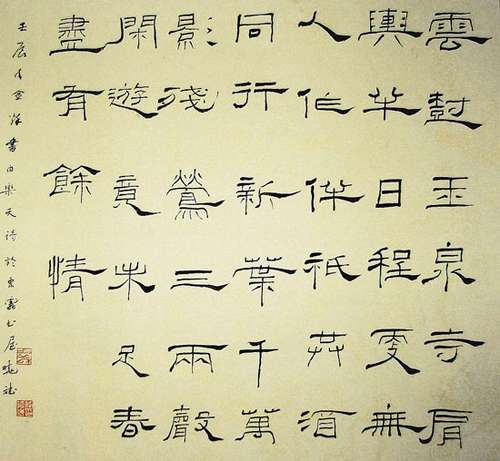 雲尌玉泉寺肩
輿半日程更無
人作伴祇共酒
同行新葉千萬
影殘鶯三兩聲
閑遊竟未足春
盡有餘情
壬辰書白樂天詩於